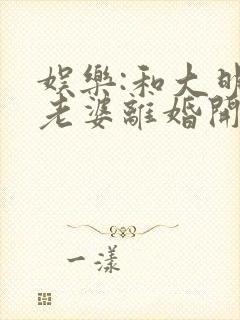 娛樂:和大明
老婆離婚開
一漾